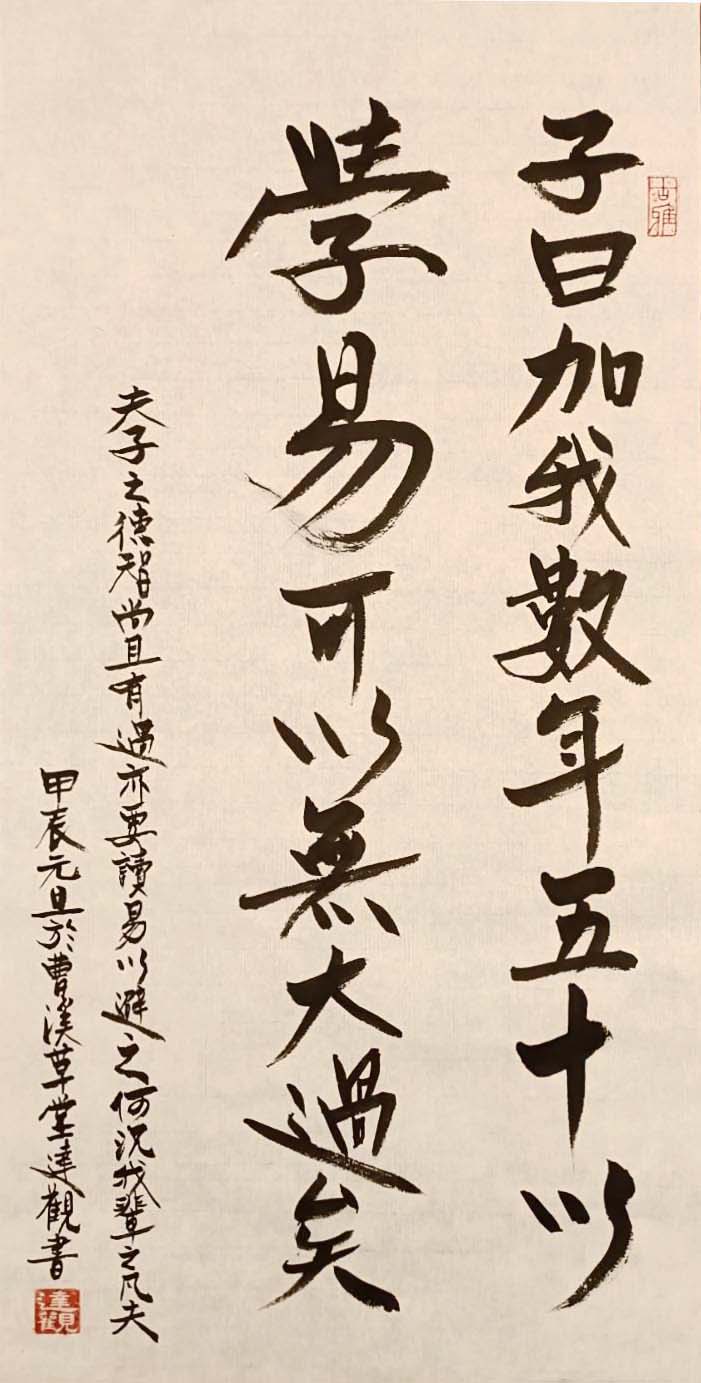 子曰加我數年五十以
學易可以無大過矣
夫子之德智尚且有過亦要讀易以避之何況我輩之凡夫
甲辰元旦於曹溪草堂達觀書
達觀